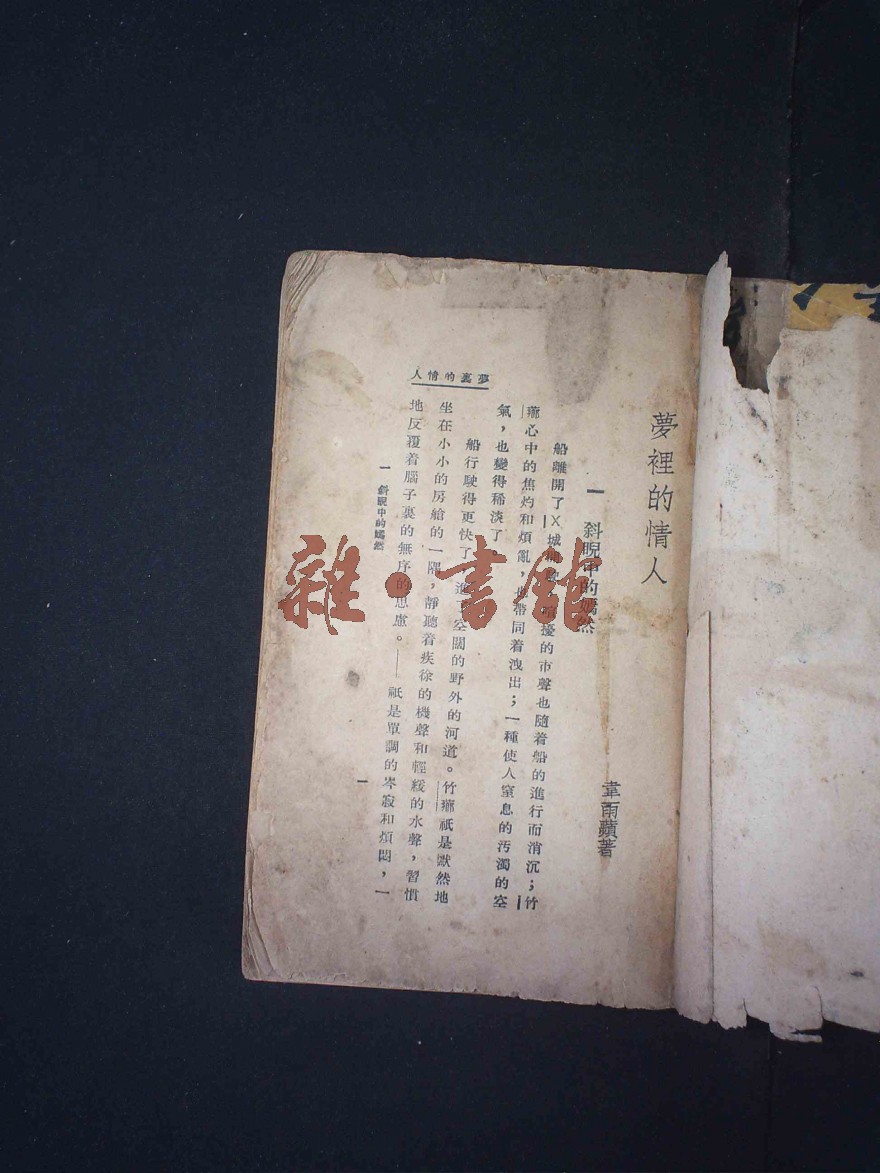 夢裡的情人
韋雨蘋著
一 斜睨中的嫣然
船離開了X城 擾的市聲也隨着船的進行而消沉；竹
心中的焦灼和煩亂，也帶同着洩出；一種使人窒息的汚濁的空
氣，也變得稀淡了
船行駛得更快了 進了空闊的野外的河道。竹 祇是默然地
坐在小小的房艙的一隅，靜聽着疾徐的機聲和輕緩的水聲，習慣
地反覆着腦子裏的無序的思慮。——祇是單調的岑寂和煩悶，一
夢裏的情人
一 斜睨中的嫣然
一
雜·書館